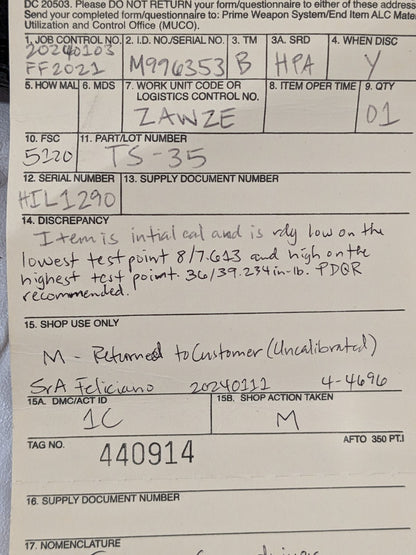 DC 20503. Please DO NOT RETURN your form/questionnaire to either of these address
Send your completed form/questionnaire to: Prime Weapon System/End Item ALC Mate
Utilization and Control Office (MUCO).
1. JOB CONTROL NO. 2. I.D. NO./SERIAL NO. 3. TM 3A. SRD 4. WHEN DISC
20240103
FF2021 M996353 B HPA Y
5. HOW MAL 6. MDS 7. WORK UNIT CODE OR LOGISTICS CONTROL NO. 8. ITEM OPER TIME 9. QTY
ZAWZE 01
10. FSC 11. PART/LOT NUMBER
5120 TS-35
12. SERIAL NUMBER 13. SUPPLY DOCUMENT NUMBER
HIL1290
14. DISCREPANCY
Item is intial cal and is rdy low on the
lowest test point 8/7.613 and high on the
highest test point. 36/39.234 in-lb. PDQR
recommended.
15. SHOP USE ONLY
M - Returned to Customer (Uncalibrated)
SrA Feliciano 20240111 4-4696
15A. DMC/ACT ID 15B. SHOP ACTION TAKEN
1C M
TAG NO. 440914 AFTO 350 PT.I
16. SUPPLY DOCUMENT NUMBER
17. NOMENCLATURE